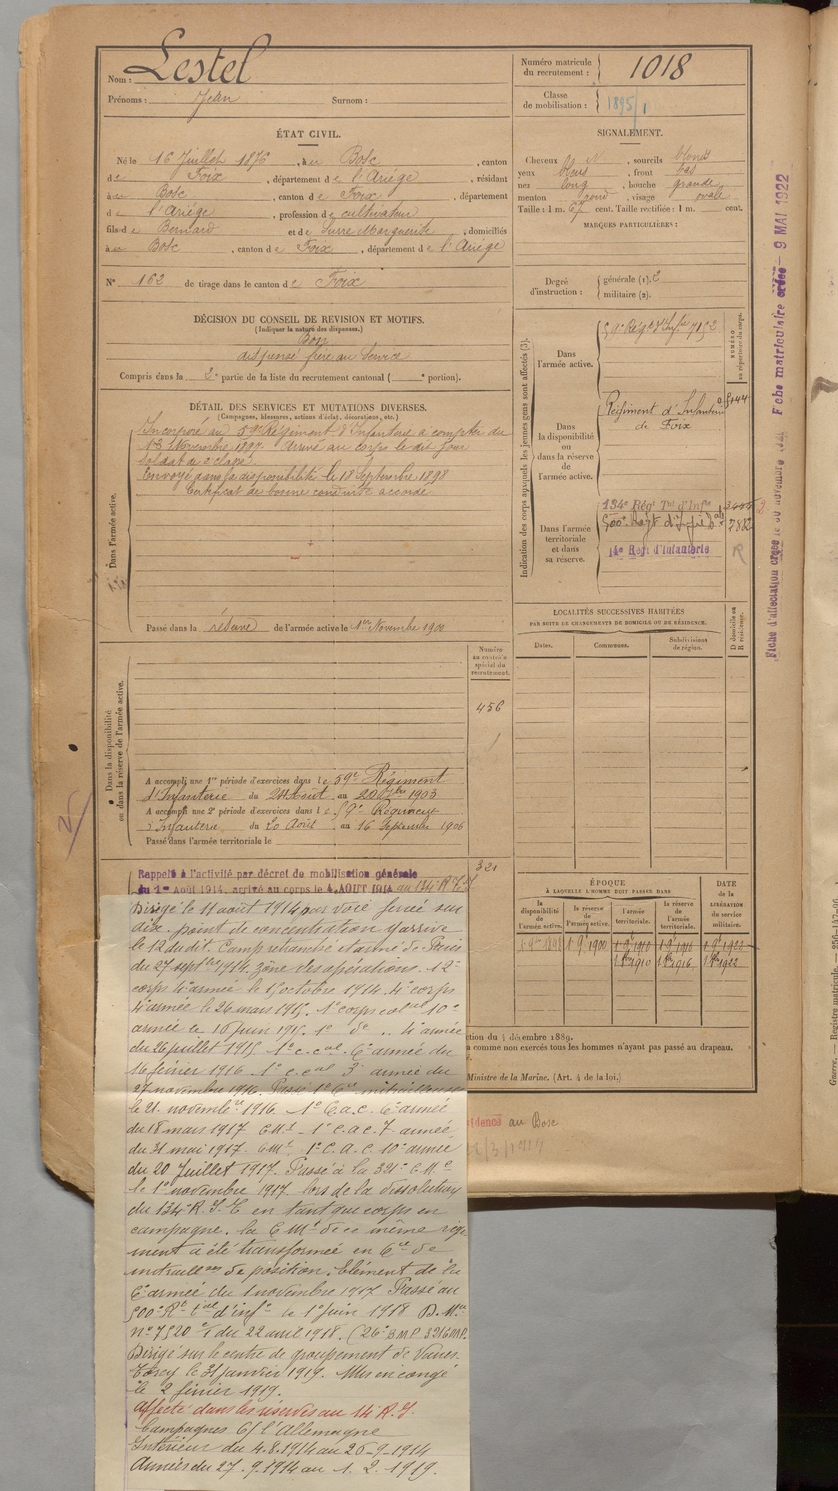 Nom : Lestel
Prénoms : Jean Surnom :
Numéro matricule
du recrutement : 1018
Classe
de mobilisation : 1895/1
ÉTAT CIVIL.
Né le 16 Juillet 1876, à u Bosc, canton
de Foix, département de l'Ariège, résidant
à u Bosc, canton de Foix, département
de l'Ariège, profession de cultivateur
fils de Bernard et de Surre Marguerite, domiciliés
à u Bosc, canton de Foix, département de l'Ariège
N° 162 de tirage dans le canton de Foix
SIGNALEMENT.
Cheveux N, sourcils blonds
yeux bleus, front bas
nez long, bouche grande
menton rond, visage ovale
Taille : 1 m. 67 cent. Taille rectifiée : 1 m. cent.
MARQUES PARTICULIÈRES :
Degré
d'instruction : générale (1). 2
militaire (2).
DÉCISION DU CONSEIL DE REVISION ET MOTIFS.
(Indiquer la nature des dispenses.)
Bon
dispensé frère au service
Compris dans la 2e partie de la liste du recrutement cantonal ( portion).
DÉTAIL DES SERVICES ET MUTATIONS DIVERSES.
(Campagnes, blessures, actions d'éclat, décorations, etc.)
Dans l'armée active.
Incorporé au 59e Régiment d'Infanterie à compter du
Novembre 1897. Arrivé au corps le dit jour
soldat de 2e classe
Envoyé dans la disponibilité le 18 Septembre 1898
Certificat de bonne conduite accordé
Passé dans la réserve de l'armée active le 1er Novembre 1900
Indication des corps auxquels les jeunes gens sont affectés (3).
Dans
l'armée active.
59e Régt d'Infie 7152
NUMÉRO
au répertoire du corps.
Dans
la disponibilité
ou dans la réserve
de
l'armée active.
Régiment d'Infanterie
de Foix
Dans l'armée
territoriale
et dans
sa réserve.
134e Régt Terr d'Infie
500e
14e Regt d'Infanterie
R
LOCALITÉS SUCCESSIVES HABITÉES
PAR SUITE DE CHANGEMENTS DE DOMICILE OU DE RÉSIDENCE.
Dates. Communes. Subdivisions
de région.
D domicile ou
R résidence.
Numéro
au contrôle
spécial du
recrutement.
456
321
Dans la disponibilité
ou dans la réserve de l'armée active.
A accompli une 1re période d'exercices dans le 59e Régiment
d'Infanterie du 24 Août au 20 7bre 1903
A accompli une 2e période d'exercices dans le 59e Régiment
d'Infanterie du 20 Août au 16 Septembre 1906
Passé dans l'armée territoriale le
Rappelé à l'activité par décret de mobilisation générale
du 1er Août 1914, arrivé au corps le 4 AOUT 1914 au 134e R.I.T
Dirigé le 11 août 1914 par voie ferrée sur
point de concentration y arrive
le 12 du dit. Camp retranché armée de Paris
du 27 septbre 1914. zône des opérations. 12e
corps 4e armée le 1 octobre 1914. 4e corps
4e armée le 26 mars 1915. 1e corps col 10e
armée le 10 juin 1915. 1e de .. 4e armée
du 26 juillet 1915 1e c.cal. 6e armée du
16 février 1916. 1e c.cal 3e armée du
27 novembre 1916. Passé 1e Cie mitrailleuse
le 21 novembre 1916. 1e C.a.c. 6e armée
du 18 mars 1917 C.M.1 - 1e C.a.c 7e armée
du 31 mai 1917. C.M1 1e C.A.C. 10e armée
du 20 Juillet 1917. Passé à la 321e C.M.e
le 1e novembre 1917 lors de la dissolution
du 134e R.I.T en tant que corps en
campagne. la C.M1 de ce même régi
ment a été transformée en Cie de
mitrailleuses de position. élément de la
6e armée du 1 novembre 1917 Passé au
500e Rt tal d'infie le 1e juin 1918 D.Mlle
n° 7520 c/1 du 22 avril 1918. (26e B.M.P. 321 C.M.P.
Dirigé sur le centre de groupement de Vaires
Torcy le 31 janvier 1919. Mis en congé
le 2 février 1919.
Affecté dans les réserves au 14e R.I.
Campagnes C/ l'Allemagne
Intérieur du 4.8.1914 au 26-9-1914
Armées du 27.9.1914 au 1.2.1919.
ÉPOQUE
À LAQUELLE L'HOMME DOIT PASSER DANS
la
disponibilité
de
l'armée active. la réserve
de
l'armée active. l'armée
territoriale. la réserve
de
l'armée
territoriale. DATE
de la
LIBÉRATION
du service
militaire.
1 9e 1900 1 9e 1910 1 9e 1916 1 9e 1922
1 8bre 1910 1 8bre 1916 1 8bre 1922
ction du 4 décembre 1889.
a comme non exercés tous les hommes n'ayant pas passé au drapeau.
Ministre de la Marine. (Art. 4 de la loi.)
sidence au Bosc
/3/1919
Fiche d'affectation créée le novembre Fiche matriculaire créée 9 MAI 1922
Guerre. — Registre matricule. — 256-147-96.